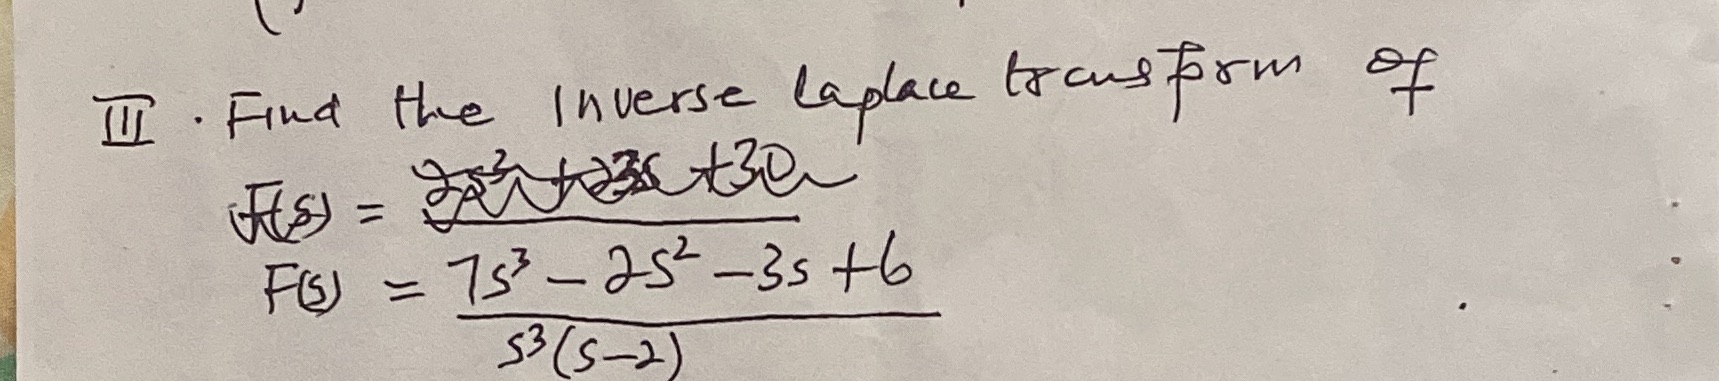 III. Find the Inverse Laplace transform of
F(s) = 2s³ + 23s + 30
F(s) = 7s³ - 2s² - 3s + 6
s³(s-2)